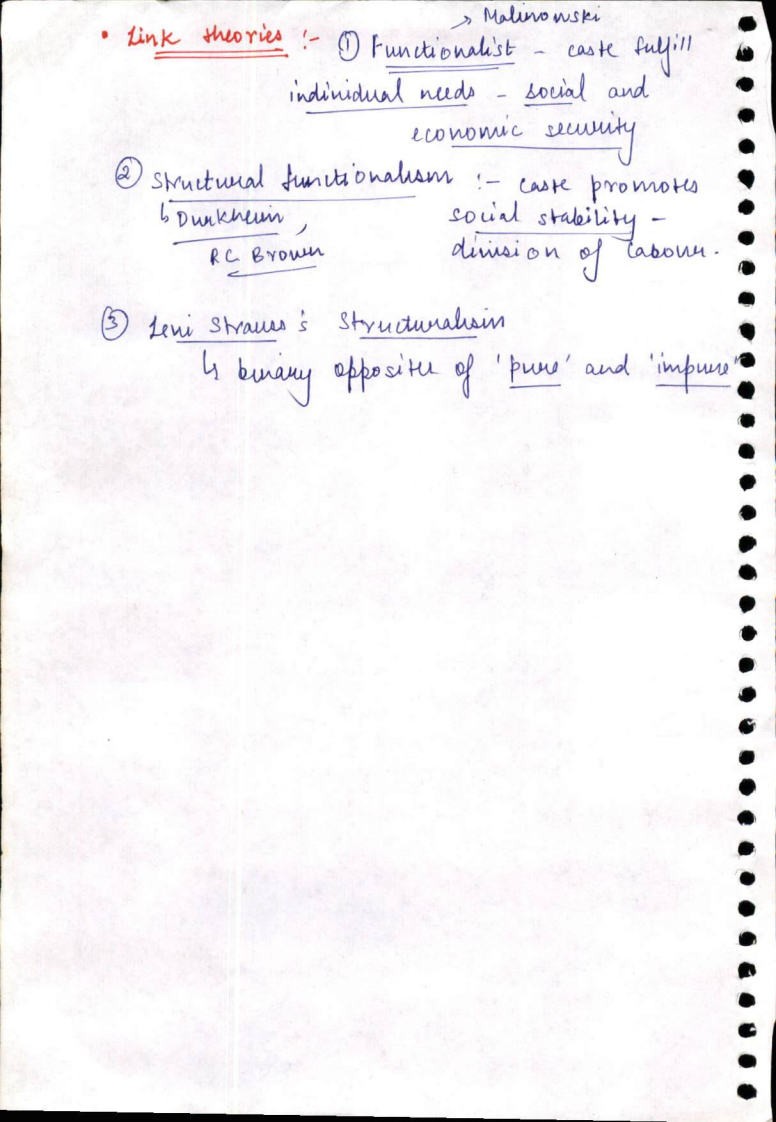 → Malinowski
• Link theories :- ① Functionalist - caste fulfill
individual needs - social and
economic security
② Structural functionalism :- caste promotes
↳ Durkheim, social stability -
RC Brown division of labour.
③ Levi Strauss's Structuralism
↳ binary opposites of 'pure' and 'impure'